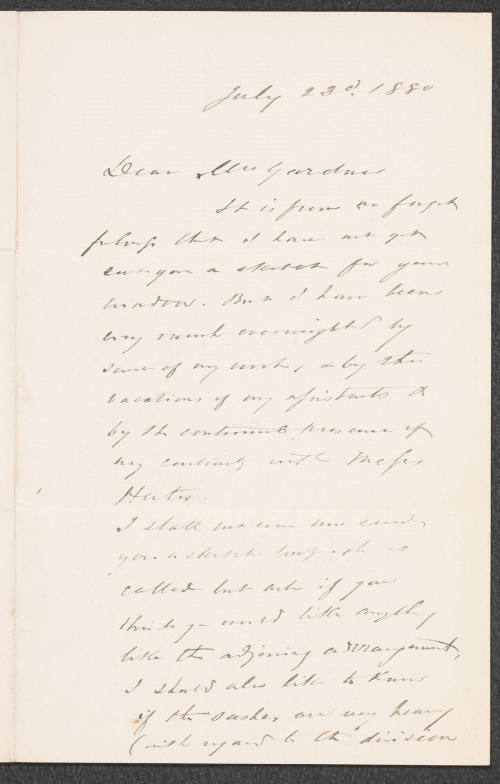 July 23d. 1880
Dear Mrs Gardner
It is from no forget
fulness that I have not yet
sent you a sketch for your
window. But I have been
very much overweighted by
some of my works, & by the
vacations of my assistants &
by the continued presence of
my contracts with Messrs
Herter.
I shall not even now send,
you a sketch so
called but ask if you
think you would like anything
like the adjoining arrangement,
I should also like to know
if the sashes are very heavy
(with regard to the division